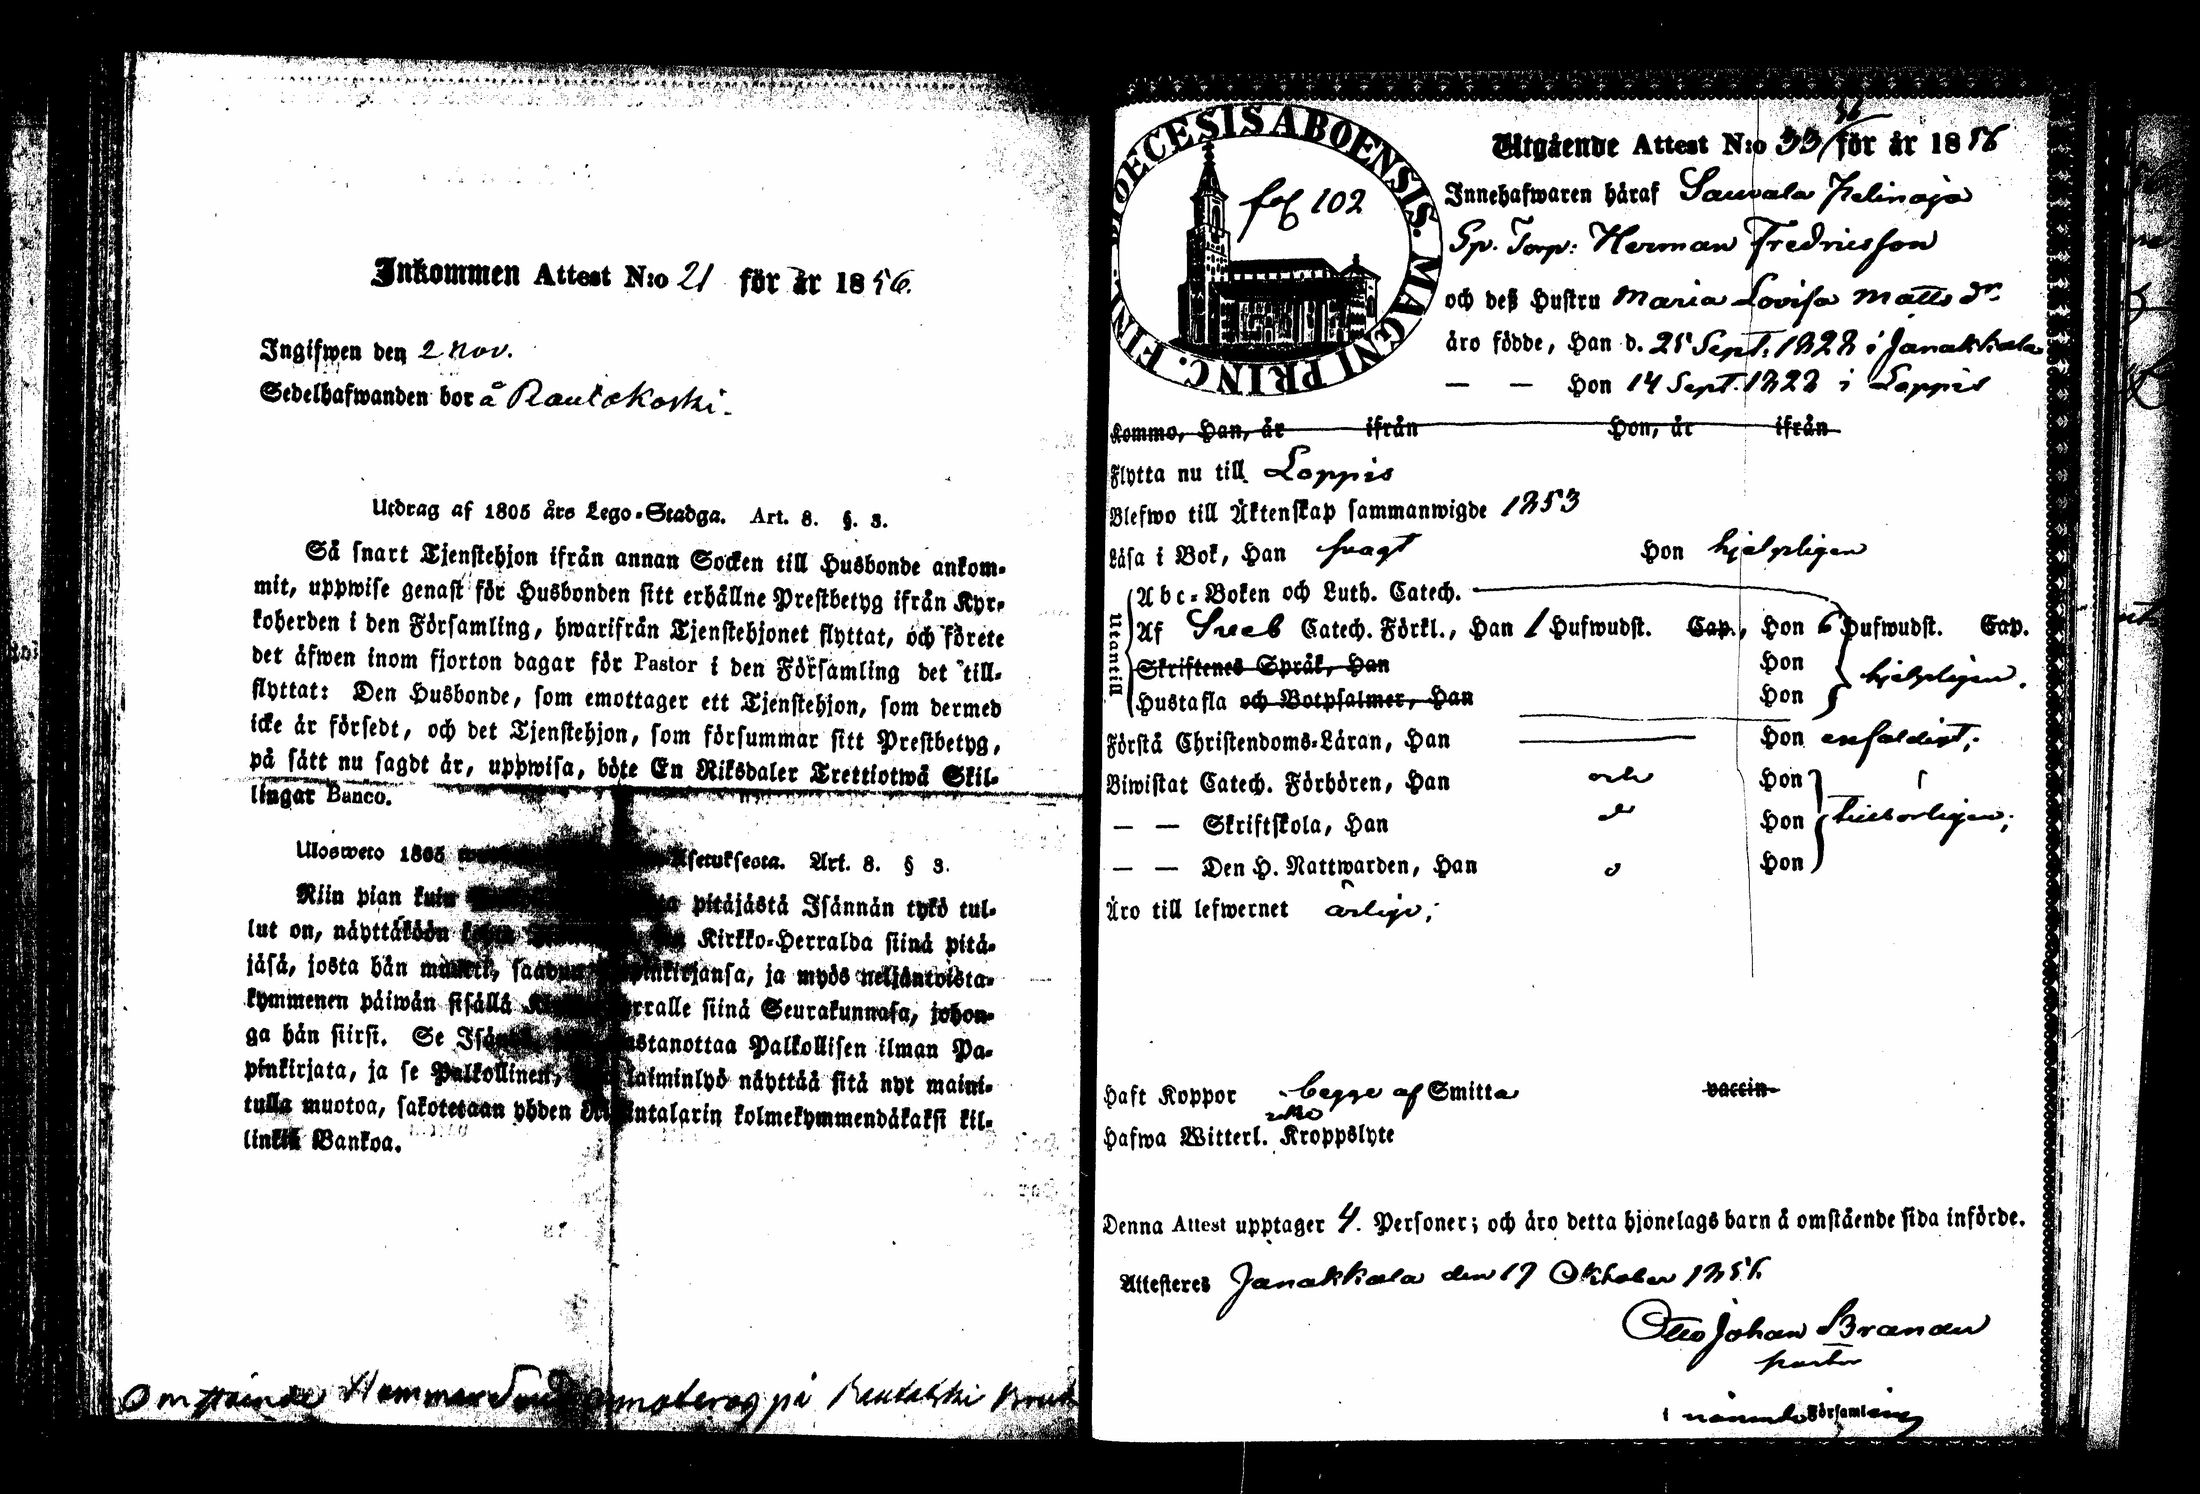 Inkommen Attest N:o 21 för år 1856.
Ingifwen den 2 Nov.
Sedelhafwanden bor å Rautakoski.
Utdrag af 1805 års Lego-Stadga. Art. 8. §. 3.
Så snart Tjenstehjon ifrån annan Socken till Husbonde ankom-
mit, uppwise genast för Husbonden sitt erhållne Prestbetyg ifrån Kyr-
koherden i den Församling, hwarifrån Tjenstehjonet flyttat, och förete
det äfwen inom fjorton dagar för Pastor i den Församling det till-
flyttat: Den Husbonde, som emottager ett Tjenstehjon, som dermed
icke är försedt, och det Tjenstehjon, som försummar sitt Prestbetyg,
på sätt nu sagdt är, uppwisa, böte En Riksdaler Trettiotwå Skil-
lingar Banco.
Ulosweto 1805 Asetuksesta. Art. 8. § 3.
Niin pian kuin pitäjästä Isännän tykö tul-
lut on, näyttäköön Kirkko-Herralda siinä pitä-
jäsä, josta hän muutti, saadun Papinkirjansa, ja myös neljäntoista-
kymmenen päiwän sisällä Kirkko-Herralle siinä Seurakunnasa, johon-
ga hän siirsi. Se Isäntä, wastanottaa Palkollisen ilman Pa-
pinkirjata, ja se Palkollinen, laiminlyö näyttää sitä nyt maini-
tulla muotoa, sakotetaan yhden Riikintalarin kolmekymmendäkaksi kil-
linkiä Bankoa.
Omstående Hammarsmed på Rautakoski Bruk
DIOECESIS ABOENSIS. MAGNI PRINC. FINL.
fol 102
Utgående Attest N:o 33/56 för år 1856
Innehafwaren häraf Sauvala Helinoja
Sp. Torp: Herman Fredricsson
och deß Hustru Maria Lovisa Matts dr.
äro födde, Han d. 25 Sept. 1828 i Janakkala
— — Hon 14 Sept. 1828 i Loppis
Kommo, Han, år ifrån Hon, år ifrån
Flytta nu till Loppis
Blefwo till Äktenskap sammanwigde 1853
Läsa i Bok, Han svagt Hon hjelpligen
Utantill
Abc-Boken och Luth. Catech.
Af Sveb Catech. Förkl., Han 1 Hufwudst. Cap., Hon 6 Hufwudst. Cap.
Skriftenes Språk, Han Hon hjelpligen.
Hustafla och Botpsalmer, Han Hon
Förstå Christendoms-Läran, Han Hon enfaldigt;
Biwistat Catech. Förhören, Han och Hon
— — Skriftskola, Han Hon tillbörligen;
— — Den H. Nattwarden, Han Hon
Äro till lefwernet ärliga;
Haft Koppor begge af Smitta vaccin.
Hafwa Witterl. icke Kroppslyte
Denna Attest upptager 4. Personer; och äro detta hjonelags barn å omstående sida införde.
Attesteres Janakkala den 17 Oktober 1856.
Otto Johan Brander
pastor
i nämnde Församling